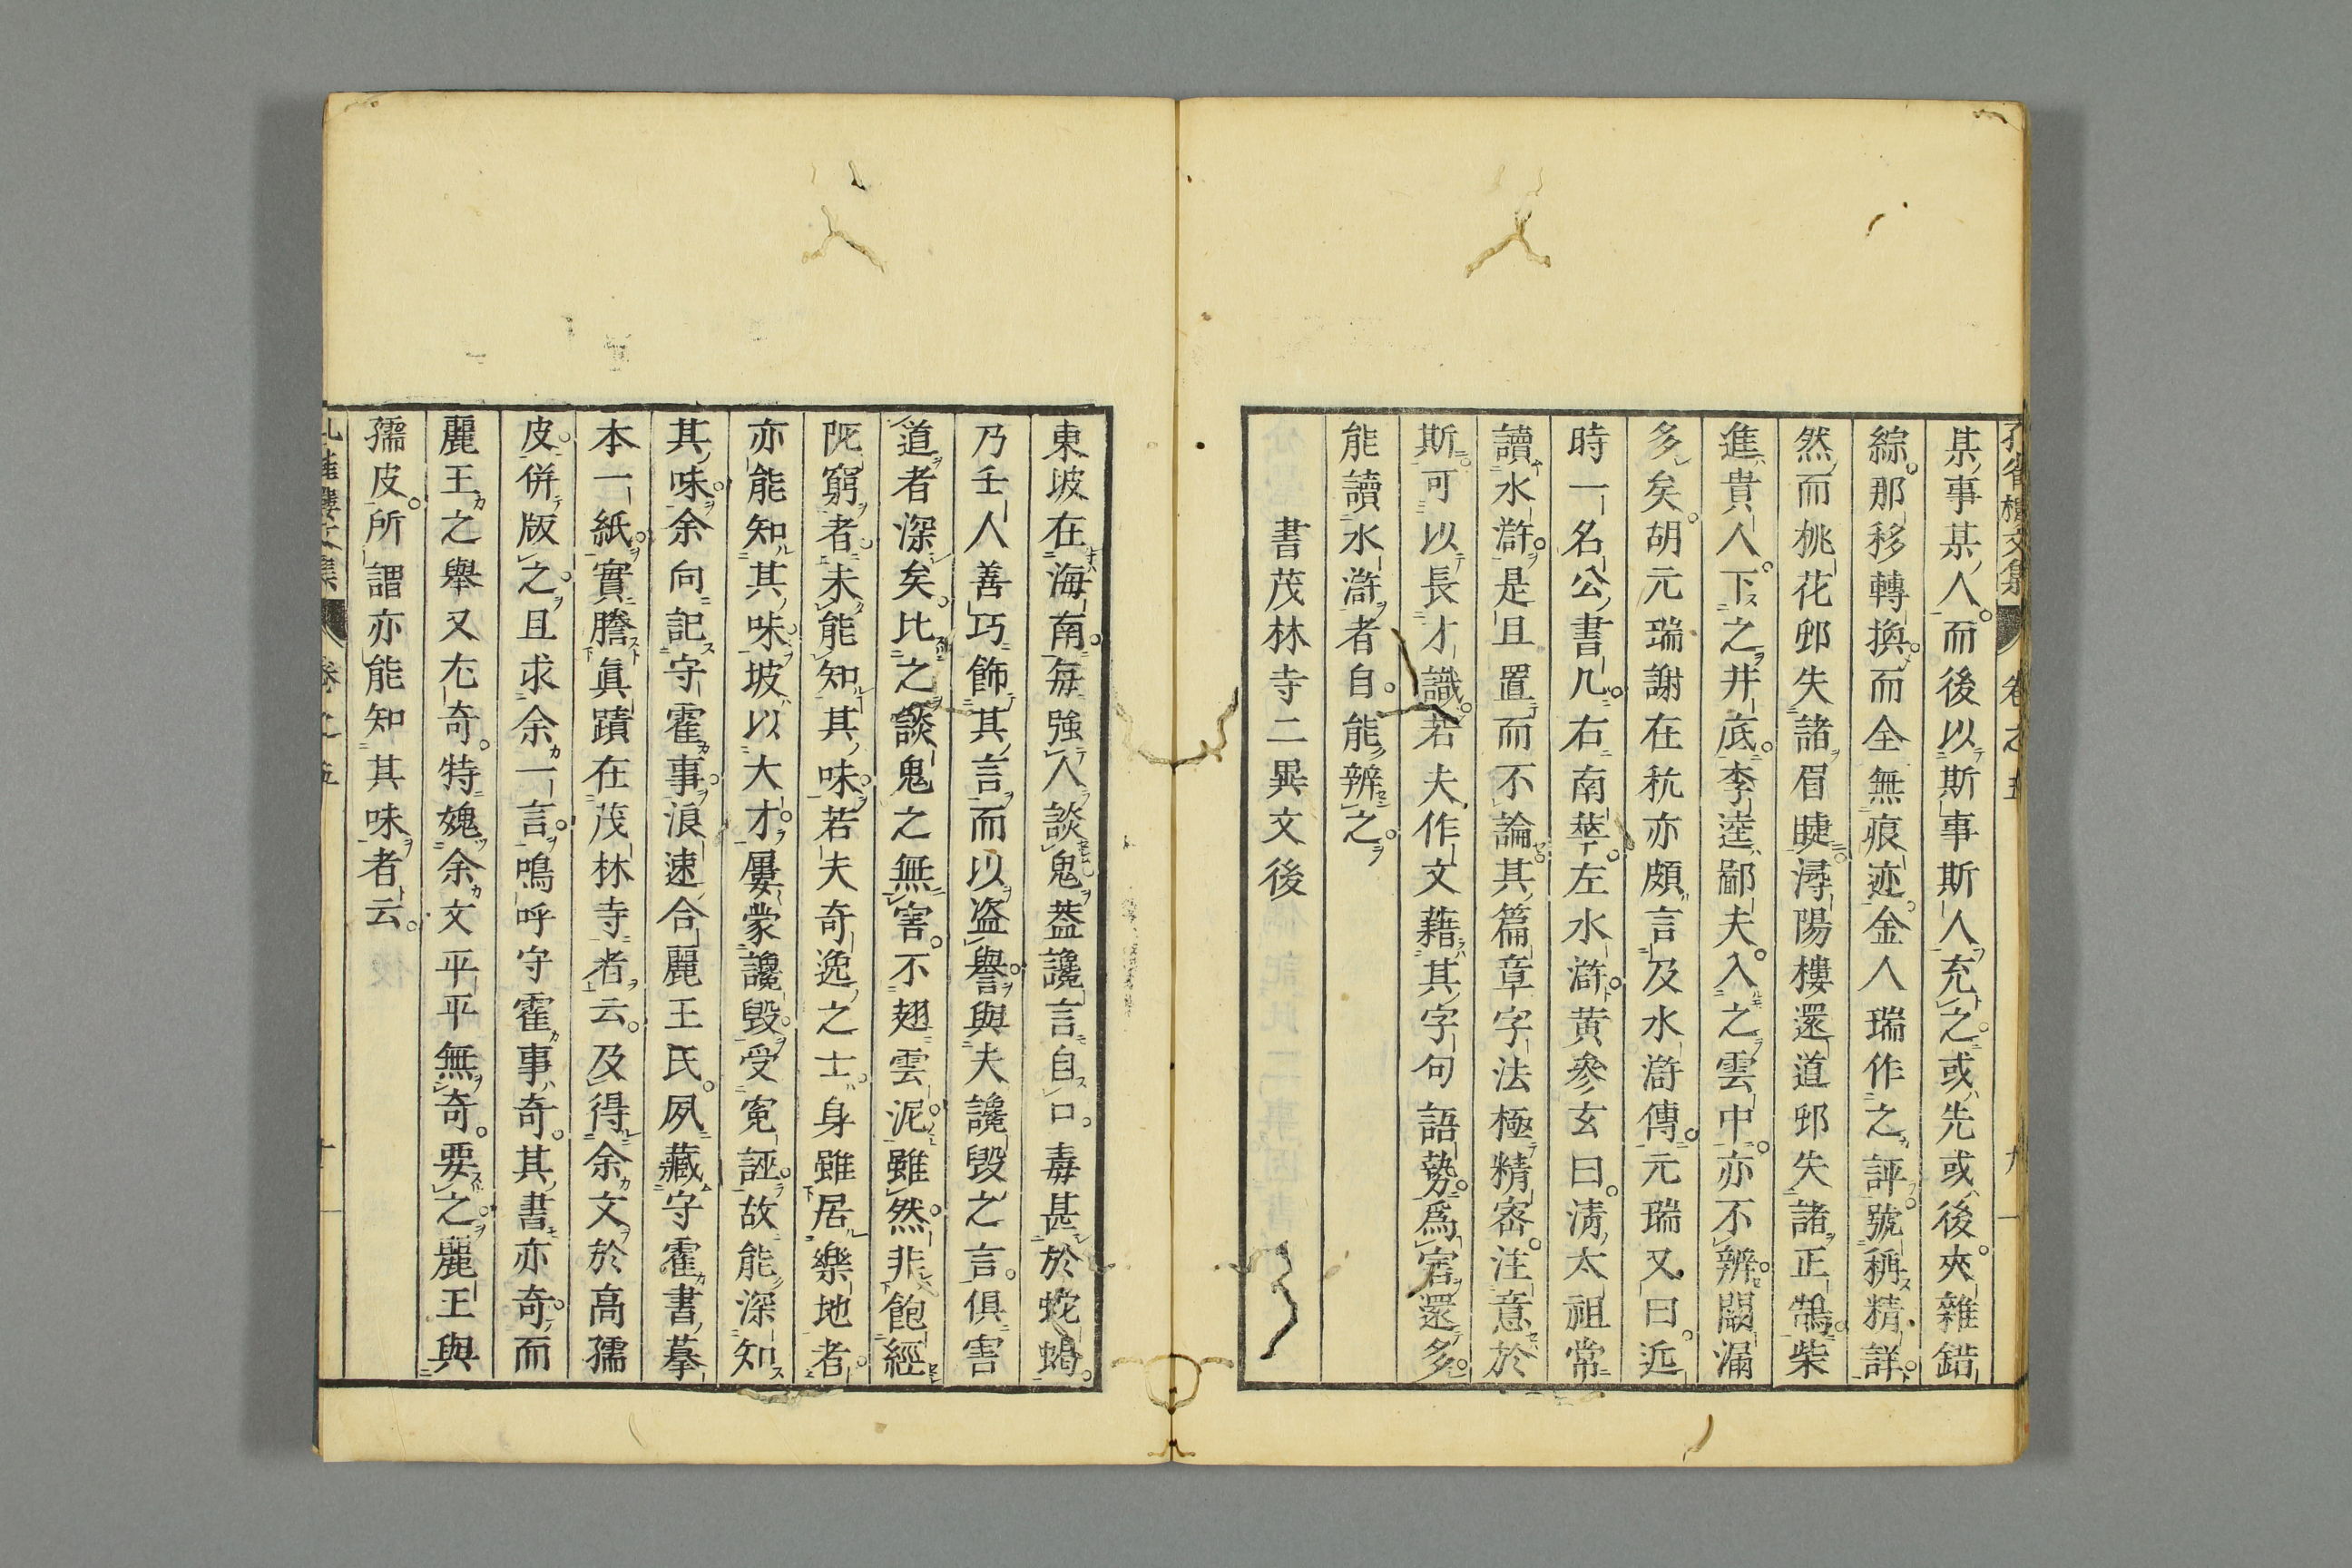 某事某人。而後以斯事斯人充之。或先或後。夾雜錯
綜。那移轉換。而全無痕迹。金人瑞作之評。號稱精詳。
然而桃花邨失諸眉睫。潯陽樓還道邨失諸正鵠。柴
進貴人。下之井底。李逵鄙夫。入之雲中。亦不辨。闕漏
多矣。胡元瑞謝在杭亦頗言及水滸傳。元瑞又曰。近
時一名公書几。右南華。左水滸。黄參玄曰。淸太祖常
讀水滸。是且置而不論其篇章字法極精密。注意於
斯。可以長才識。若夫作文藉其字句語勢。爲害還多。
能讀水滸者自。能辨之。
書茂林寺二異文後
東坡在海南。每強人談鬼。蓋讒言自口。毒甚於蛇蝎。
乃壬人善巧飾其言。而以盜譽。與夫讒毀之言。俱害
道者深矣。比之談鬼之無害。不翅雲泥。雖然。非飽經
阨窮者。未能知其味。若夫奇逸之士。身雖居樂地者。
亦能知其味。坡以大才。屢蒙讒毀。受寃誣。故能深知
其味。余向記守霍事。浪速合麗王氏。夙藏守霍書摹
本一紙。實謄眞蹟在茂林寺者云。及得余文於高孺
皮。併版之。且求余一言。嗚呼守霍事奇。其書亦奇。而
麗王之舉又尤奇。特媿余文平平無奇。要之。麗王與
孺皮。所謂亦能知其味者云。
卷之五
九